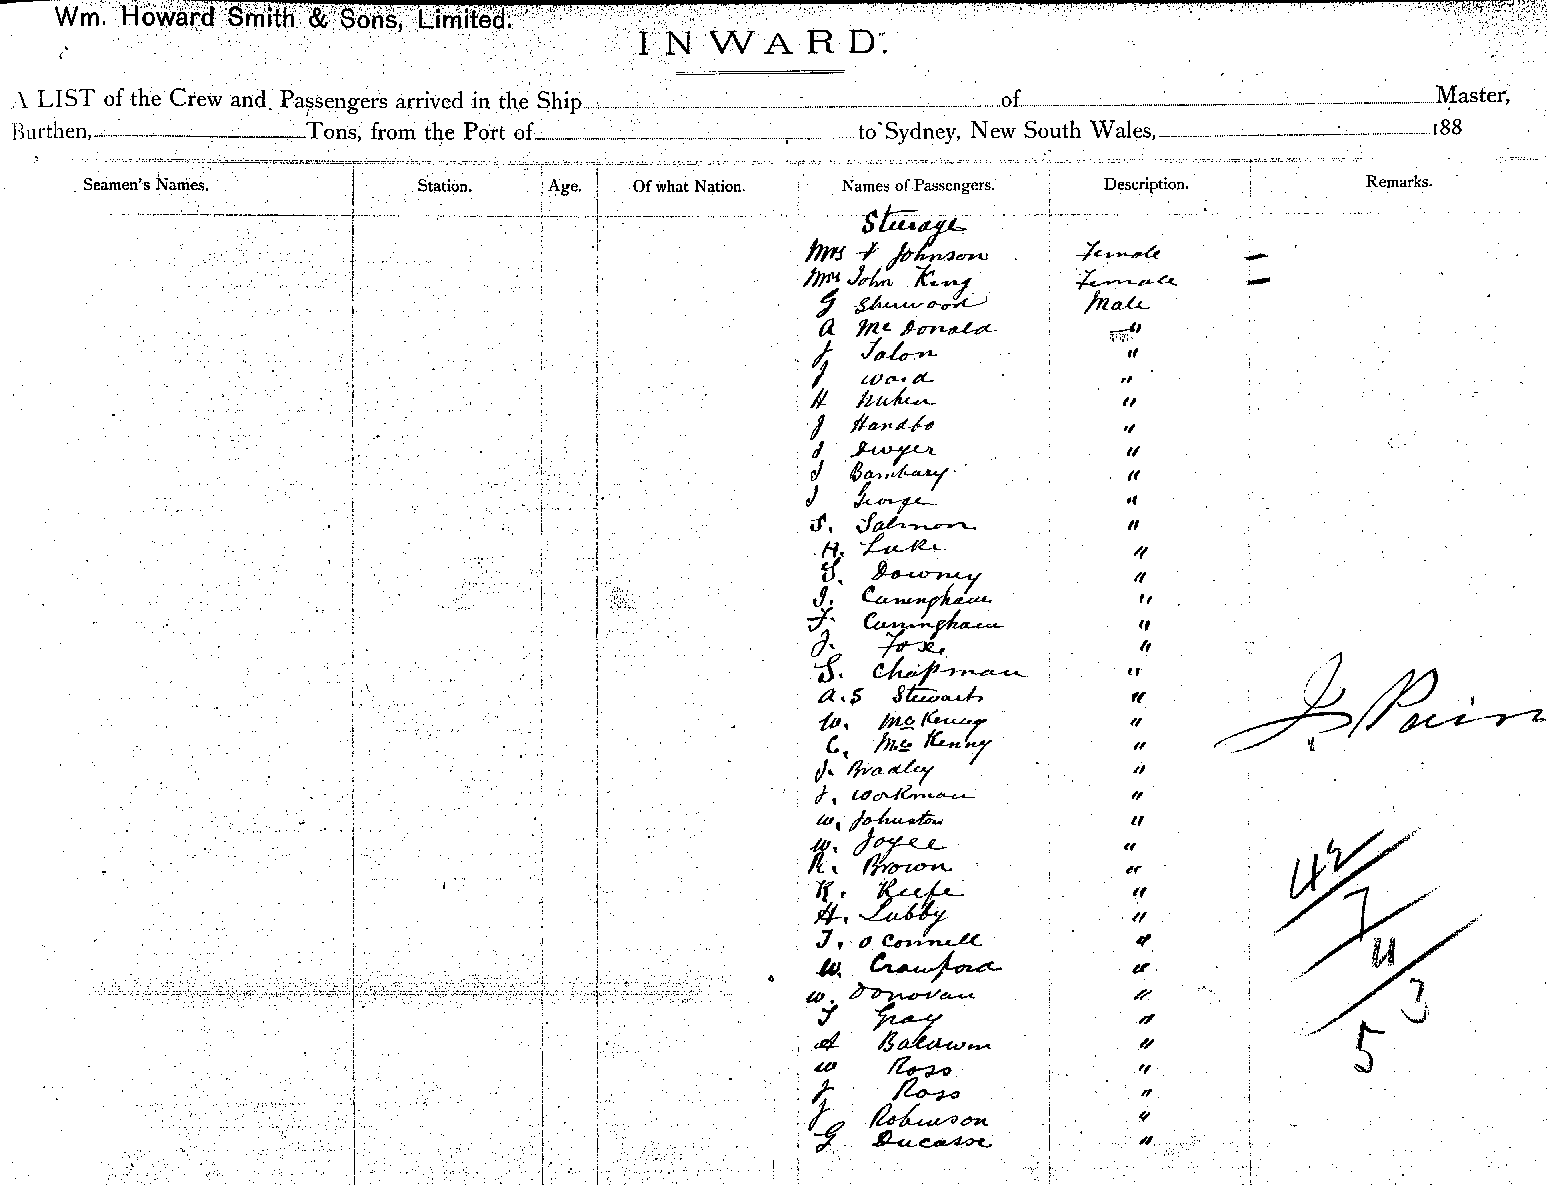 Wm. Howard Smith & Sons, Limited.
INWARD.
A LIST of the Crew and Passengers arrived in the Ship of Master,
Burthen, Tons, from the Port of to Sydney, New South Wales, 188
Seamen's Names. Station. Age. Of what Nation. Names of Passengers. Description. Remarks.
Steerage
Mrs Johnson Female —
Mrs John King Female —
G Sherwood Male
A McDonald "
J Talon "
J Ward "
H "
J Handbo "
J Dwyer "
J Bambury "
J George "
S. Salmon "
H. Luke "
S. Downey "
J. Cuningham "
F. Cunningham "
J. Foxe "
S. Chapman "
A.S Stewart "
W. McKenny "
C. McKenny "
J. Bradley "
J. Workman "
W. Johnston "
W. Joyce "
R. Brown "
K. Keefe "
H. Lubby "
T. O Connell "
W. Crawford "
W. Donovan "
T Gray "
A Baldwin "
W Ross "
J Ross "
J Robinson "
G Ducasse "
J. Pain
42
7
11
3
5